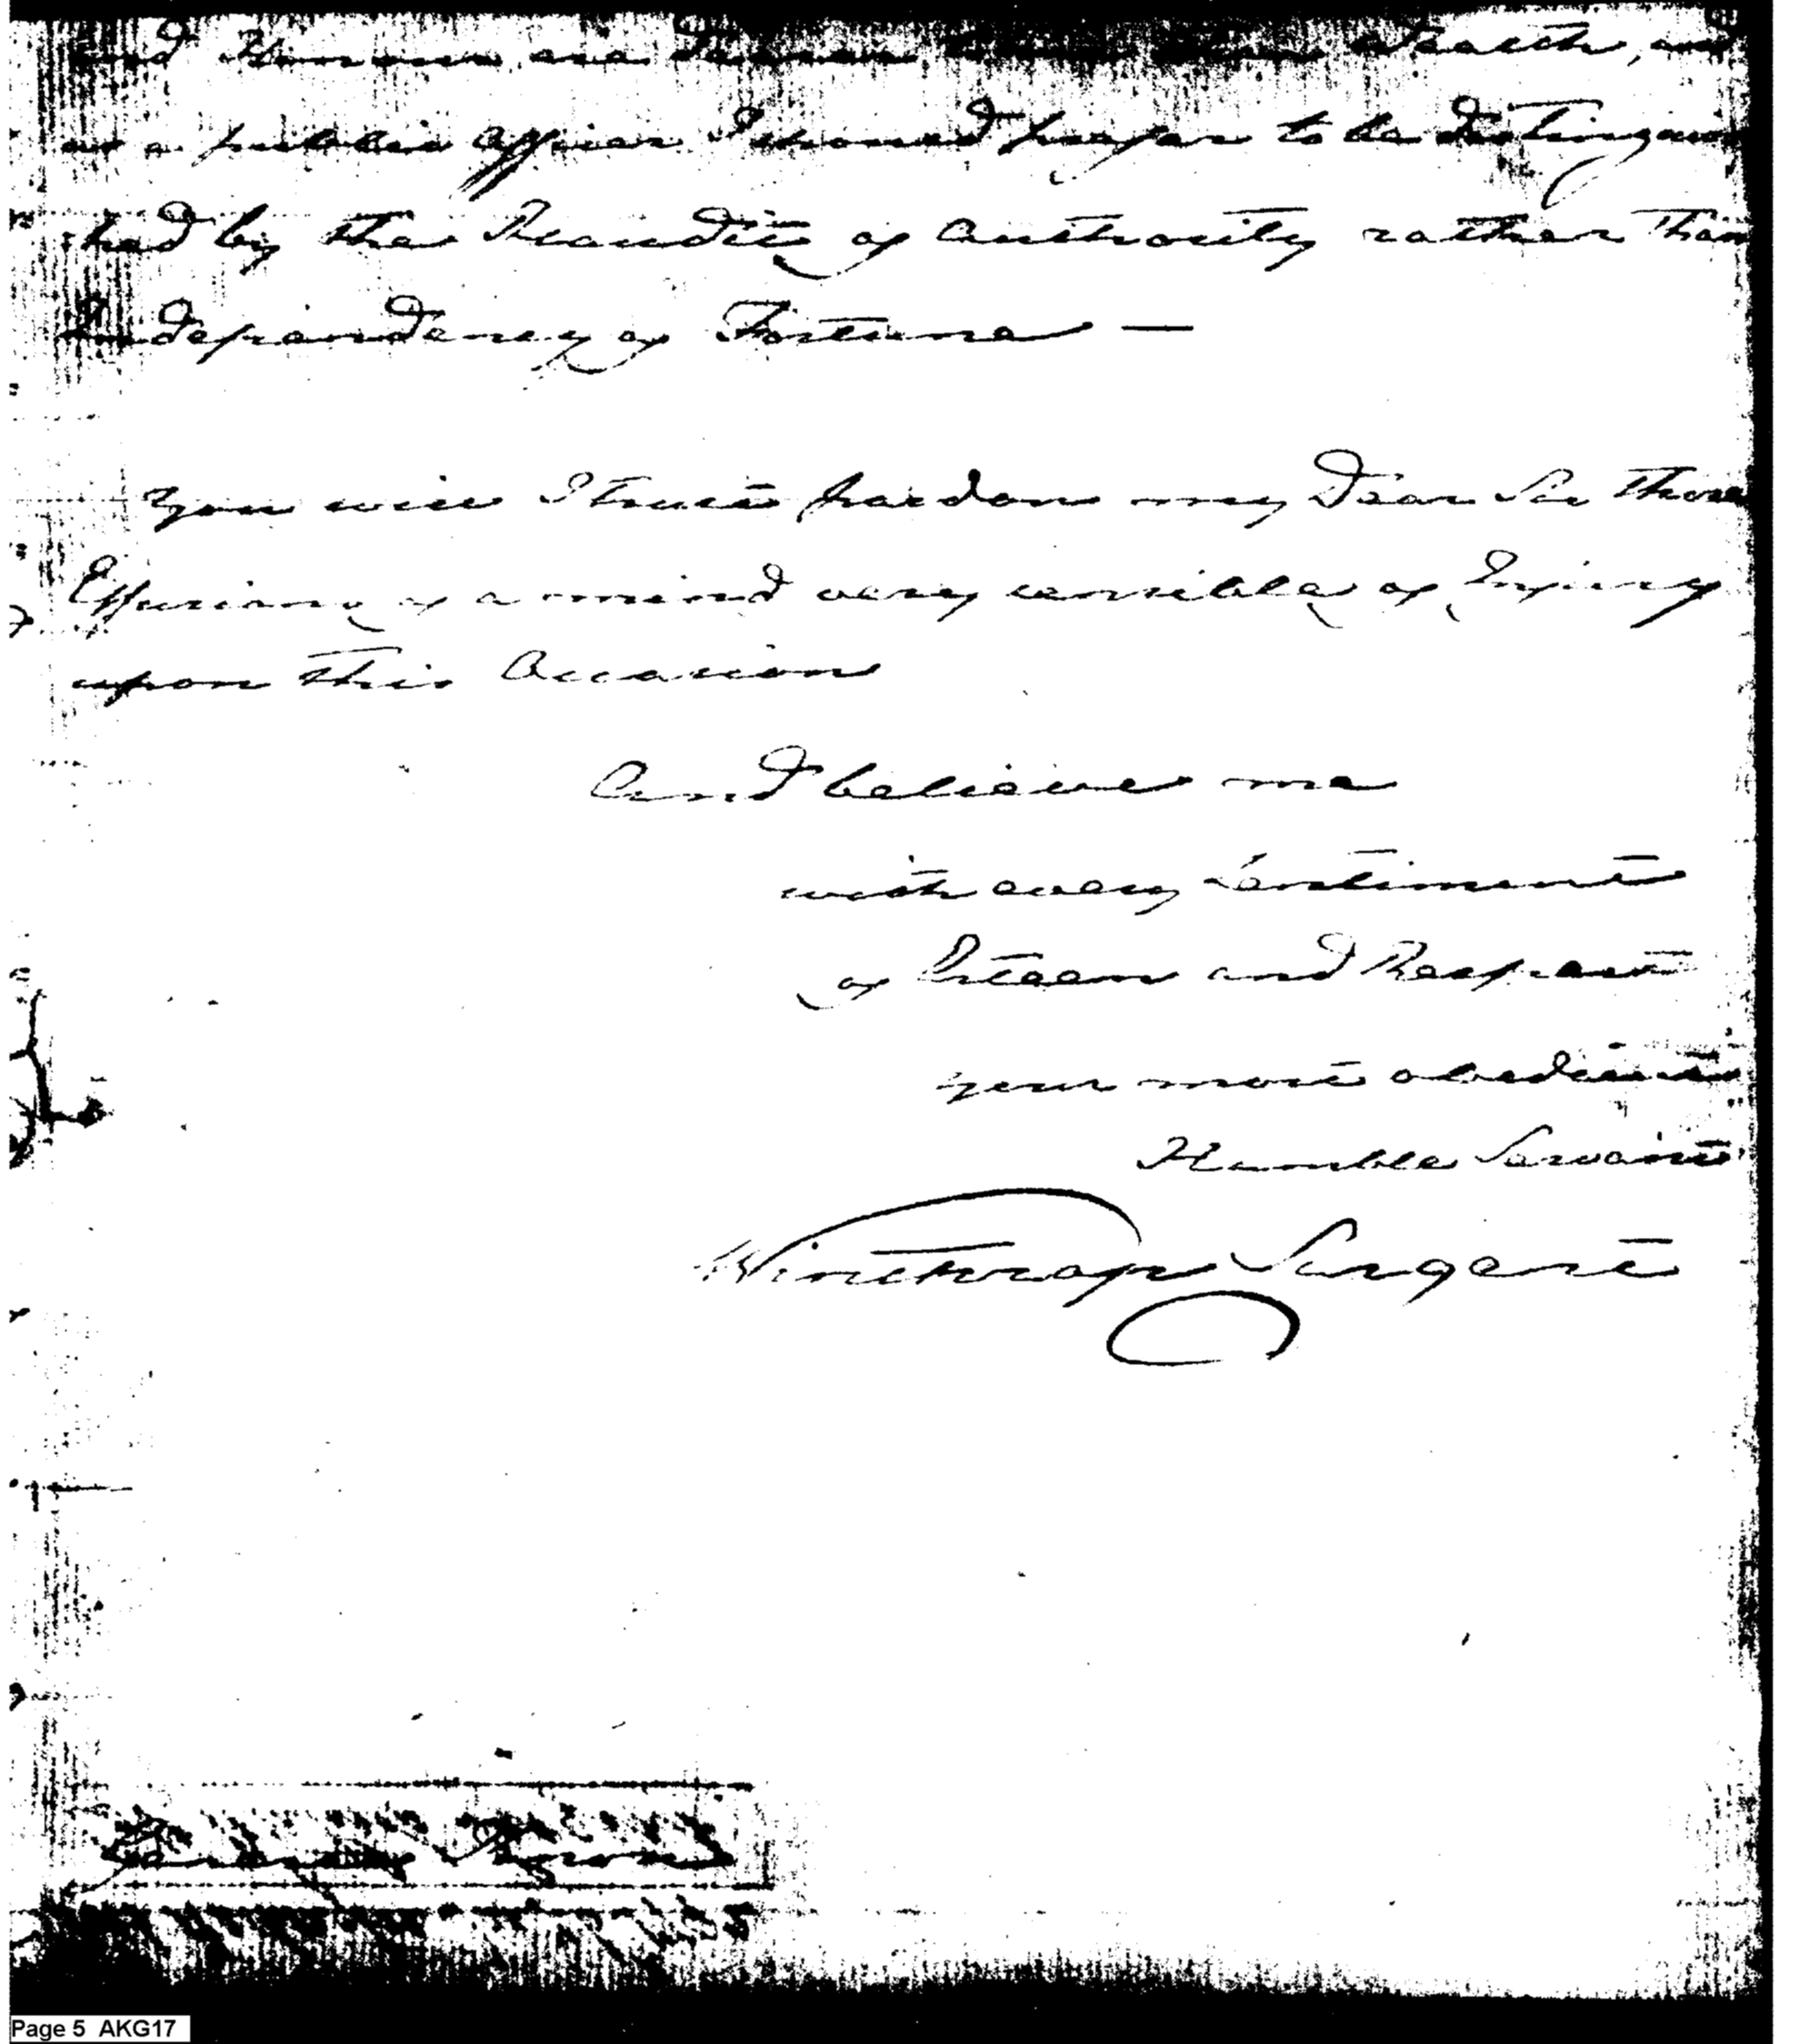 and Honour are dearer than Wealth, and
as a public Officer I should prefer to be distinguis
hed by the Plaudits of Authority rather than
Independency of Fortune —
You will I trust pardon my Dear Sir those
Effusions of a mind very sensible of Injury
upon this Occasion
And believe me
with every Sentiment
of Esteem and Respect
your most obedient
Humble Servant
Winthrop Sargent
Page 5 AKG17